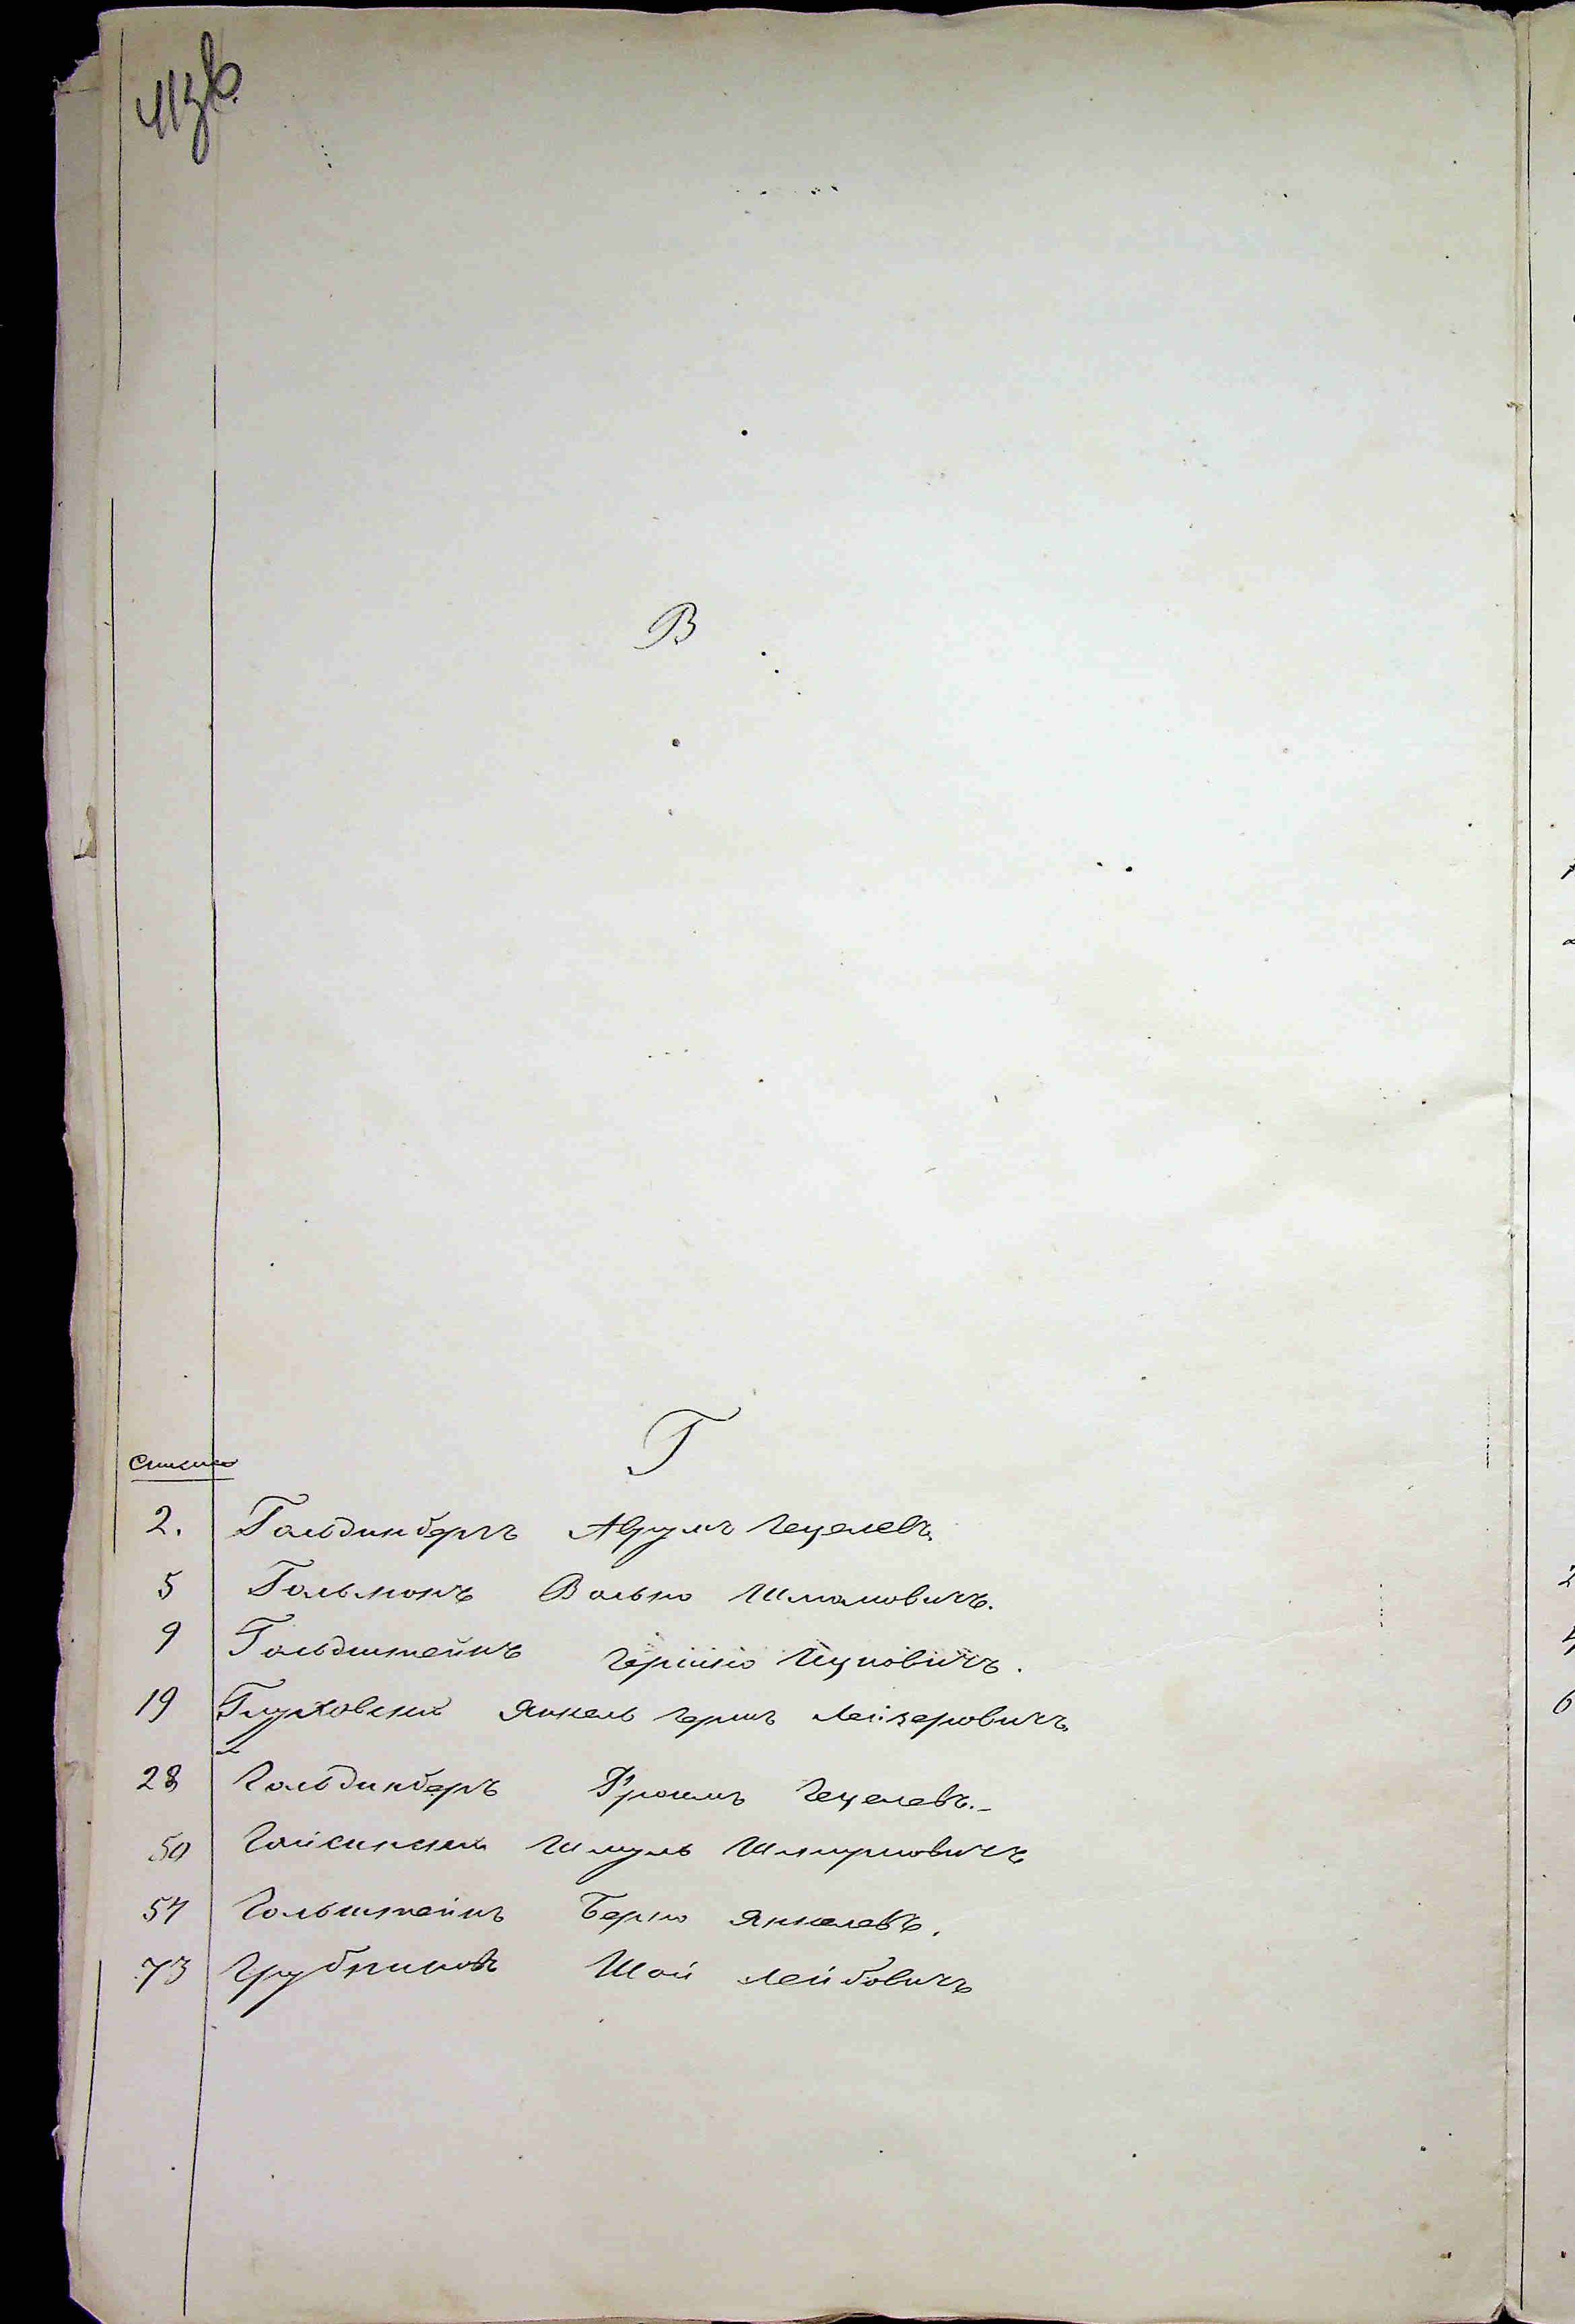 41зв.
В
Г
2. Гольдинбергъ Аврумъ Гецелевъ
5 Гольманъ Волько Шмамовичъ.
9 Гольдштейнъ Гершко Ицковичъ.
19 Глуховскій Янкель Гершъ Лейзеровичъ
28 Гольдинберъ Фроимъ Гецелевъ.
50 Гайсинскій Шмуль Шмуловичъ
57 Гольштейнъ Берко Янкелевъ.
73 Шой Лейбовичъ